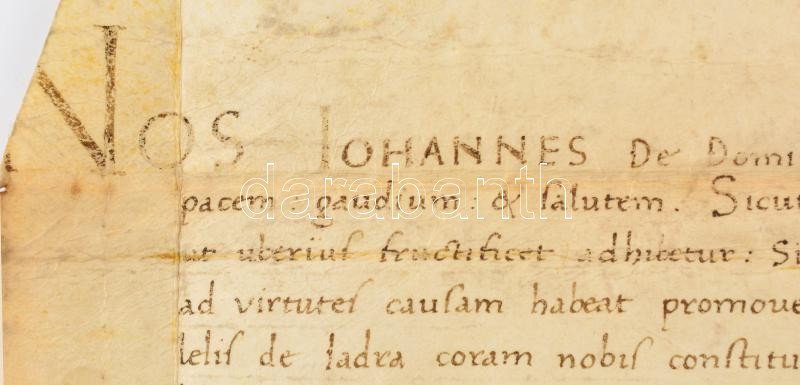 NOS IOHANNES De Domi
pacem : gaudium : & salutem. Sicut
ut uberius fructificet adhibetur : Si
ad virtutes causam habeat promove
lelis de Iadra coram nobis constitu
darabanth